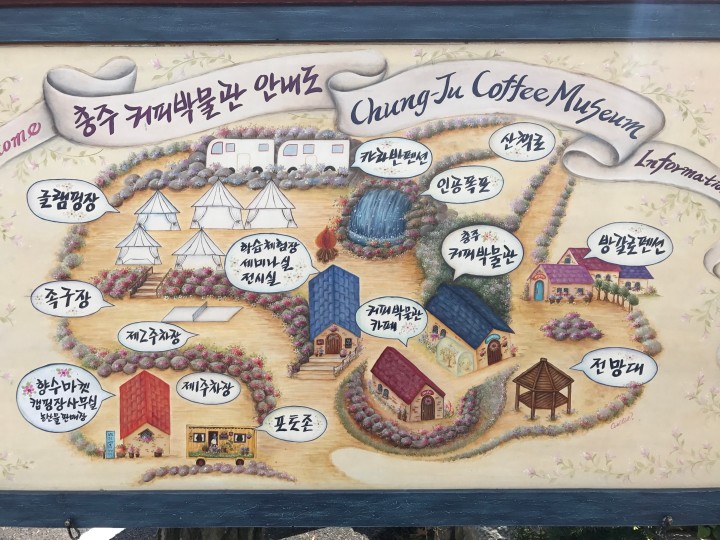 come
충주 커피박물관 안내도
Chung-Ju Coffee Museum
Informat
산책로
카라반펜션
인공폭포
글램핑장
학습체험장
세미나실
전시실
충주
커피박물관
방갈로펜션
족구장
커피박물관
카페
제2주차장
전망대
향수마켓
캠핑장사무실
농산물판매장
제1주차장
포토존